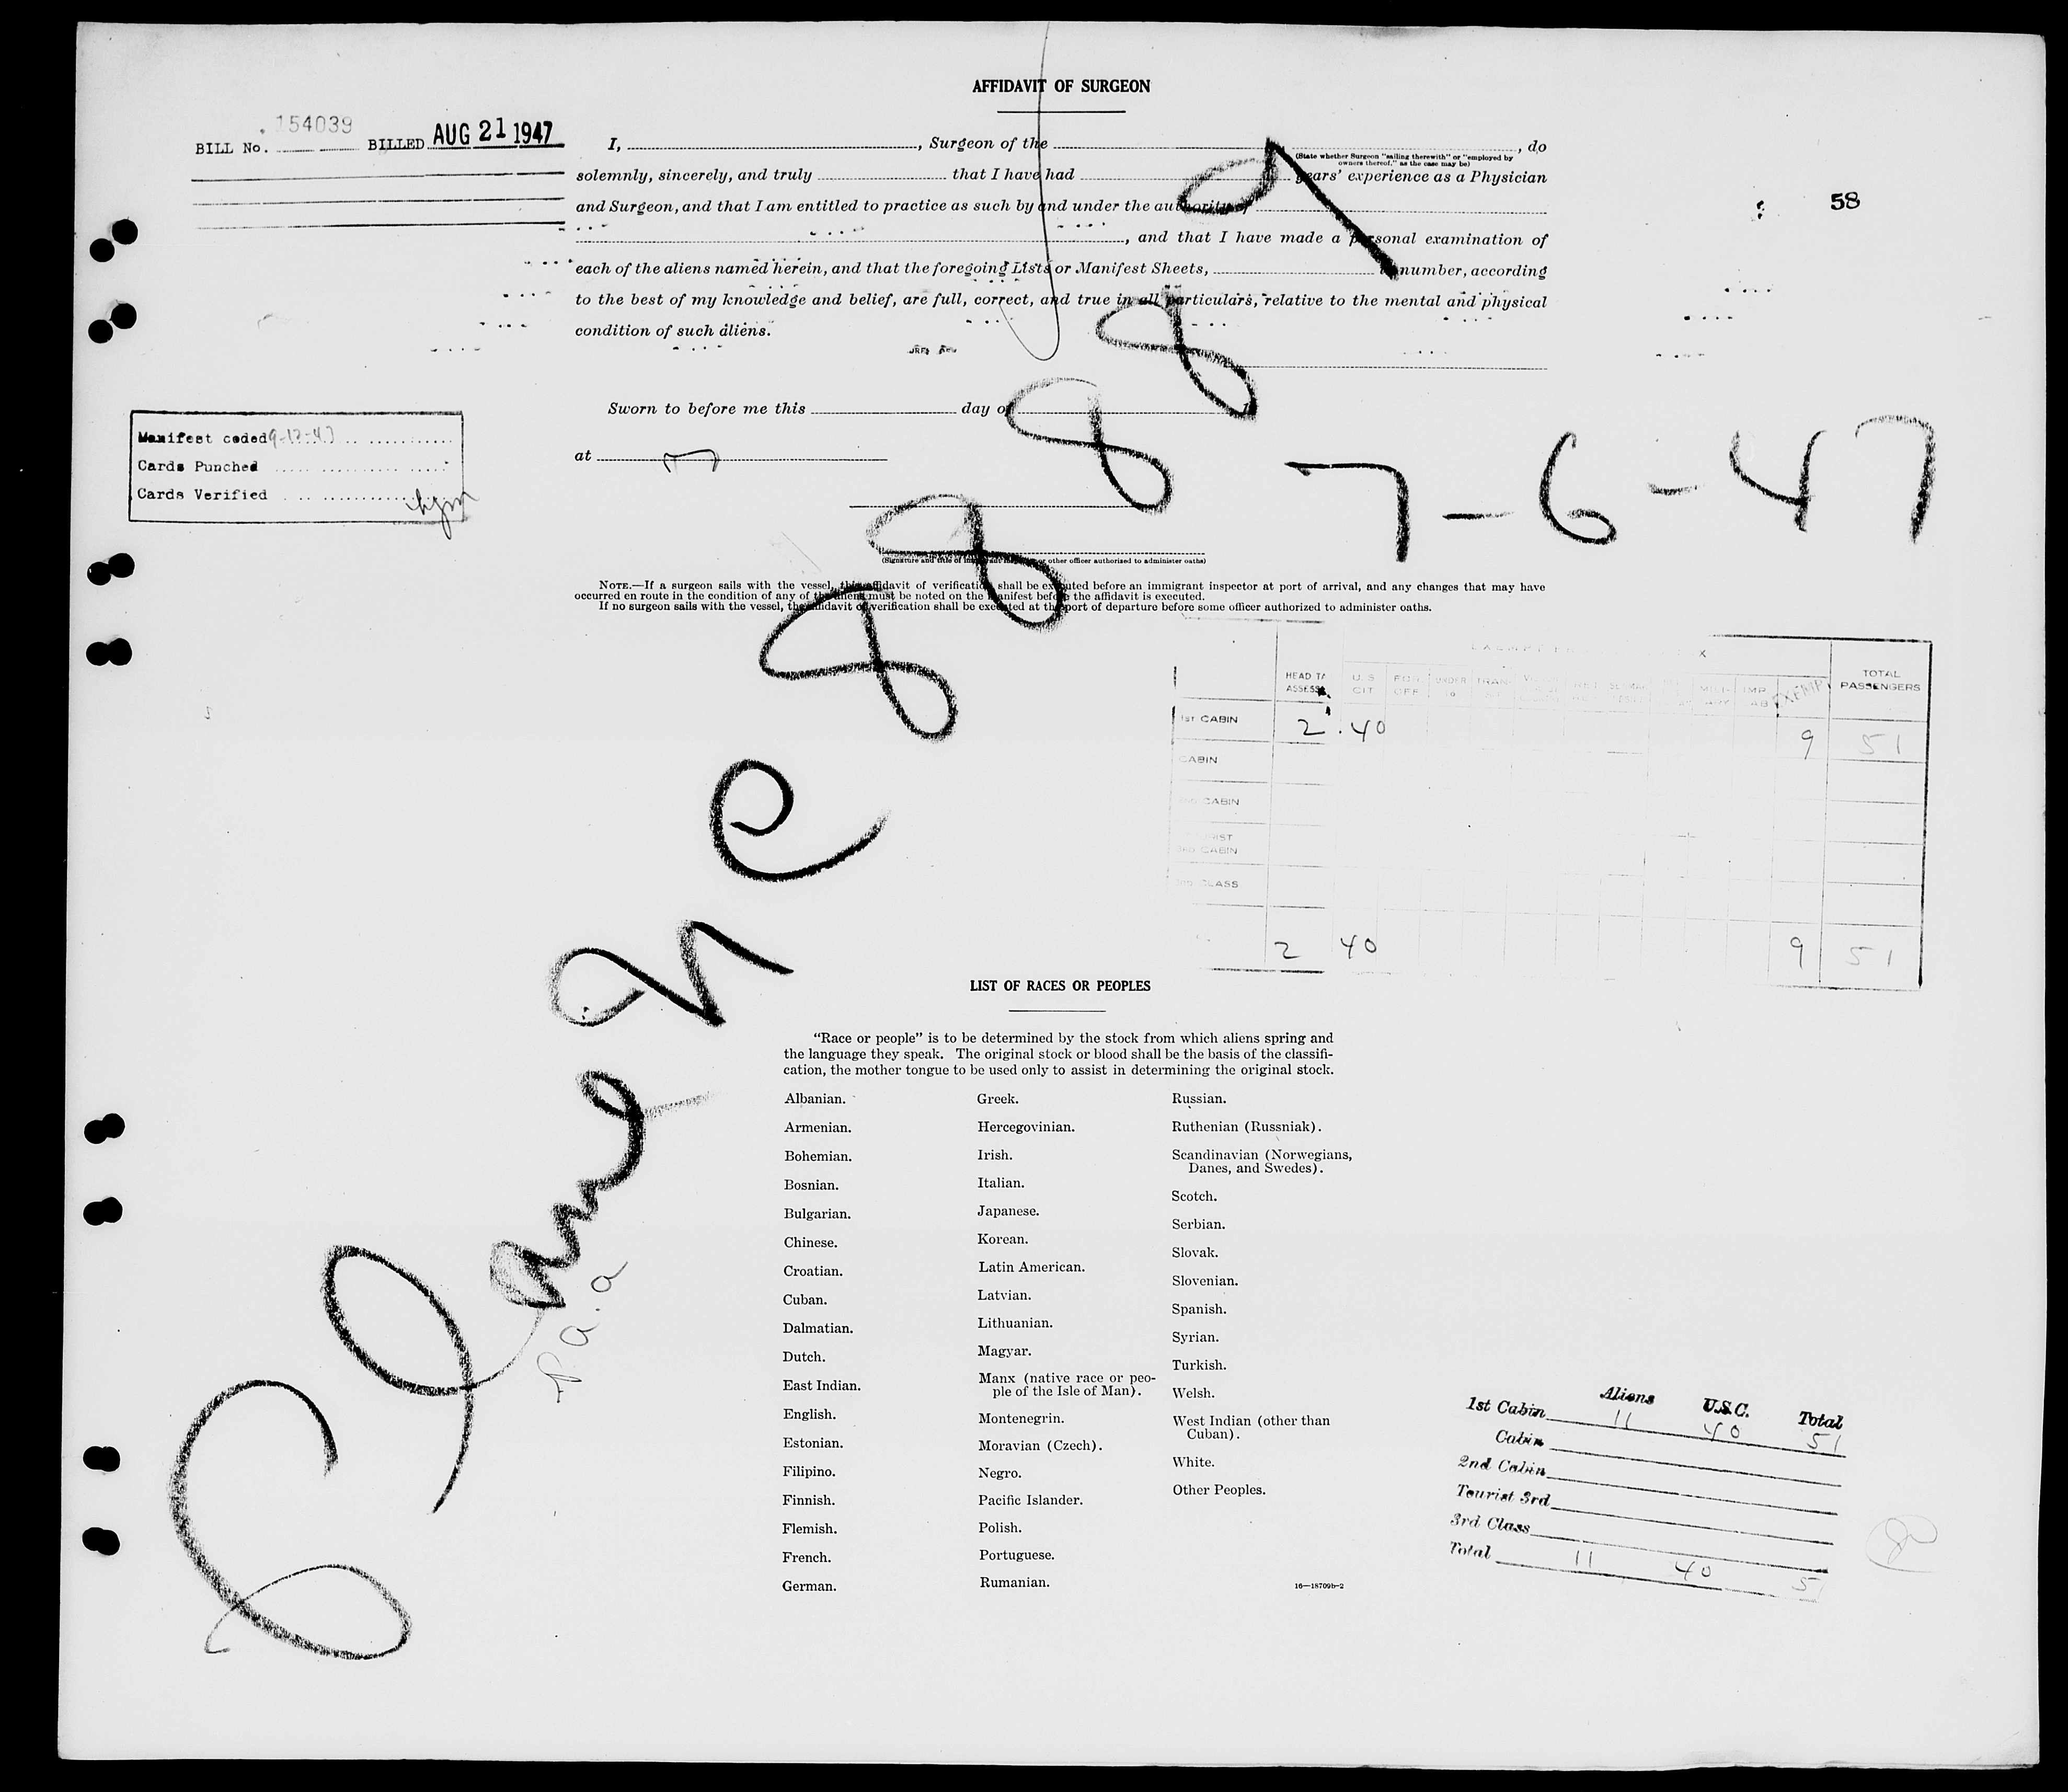 AFFIDAVIT OF SURGEON
BILL No. 154039 BILLED AUG 21 1947
I, , Surgeon of the , do
(State whether Surgeon "sailing therewith" or "employed by
owners thereof," as the case may be)
solemnly, sincerely, and truly that I have had years' experience as a Physician
and Surgeon, and that I am entitled to practice as such by and under the authority of
, and that I have made a personal examination of
each of the aliens named herein, and that the foregoing Lists or Manifest Sheets, number, according
to the best of my knowledge and belief, are full, correct, and true in all particulars, relative to the mental and physical
condition of such aliens.
58
Sworn to before me this day of
at
Manifest coded
Cards Punched
Cards Verified
7-6-47
Plane NC 88889
P.a.a
(Signature and title of immigrant inspector or other officer authorized to administer oaths)
NOTE.—If a surgeon sails with the vessel, this affidavit of verification shall be executed before an immigrant inspector at port of arrival, and any changes that may have
occurred en route in the condition of any of the aliens must be noted on the manifest before the affidavit is executed.
If no surgeon sails with the vessel, the affidavit of verification shall be executed at the port of departure before some officer authorized to administer oaths.
HEAD TA ASSESS U.S CIT EXEMP TOTAL PASSENGERS
1st CABIN 2 40 9 51
CABIN
CABIN
3RD CABIN
CLASS
2 40 9 51
LIST OF RACES OR PEOPLES
"Race or people" is to be determined by the stock from which aliens spring and
the language they speak. The original stock or blood shall be the basis of the classifi-
cation, the mother tongue to be used only to assist in determining the original stock.
Albanian.
Armenian.
Bohemian.
Bosnian.
Bulgarian.
Chinese.
Croatian.
Cuban.
Dalmatian.
Dutch.
East Indian.
English.
Estonian.
Filipino.
Finnish.
Flemish.
French.
German.
Greek.
Hercegovinian.
Irish.
Italian.
Japanese.
Korean.
Latin American.
Latvian.
Lithuanian.
Magyar.
Manx (native race or peo-
ple of the Isle of Man).
Montenegrin.
Moravian (Czech).
Negro.
Pacific Islander.
Polish.
Portuguese.
Rumanian.
Russian.
Ruthenian (Russniak).
Scandinavian (Norwegians,
Danes, and Swedes).
Scotch.
Serbian.
Slovak.
Slovenian.
Spanish.
Syrian.
Turkish.
Welsh.
West Indian (other than
Cuban).
White.
Other Peoples.
16—18709b-2
Aliens U.S.C. Total
1st Cabin 11 40 51
Cabin
2nd Cabin
Tourist 3rd
3rd Class
Total 11 40 51